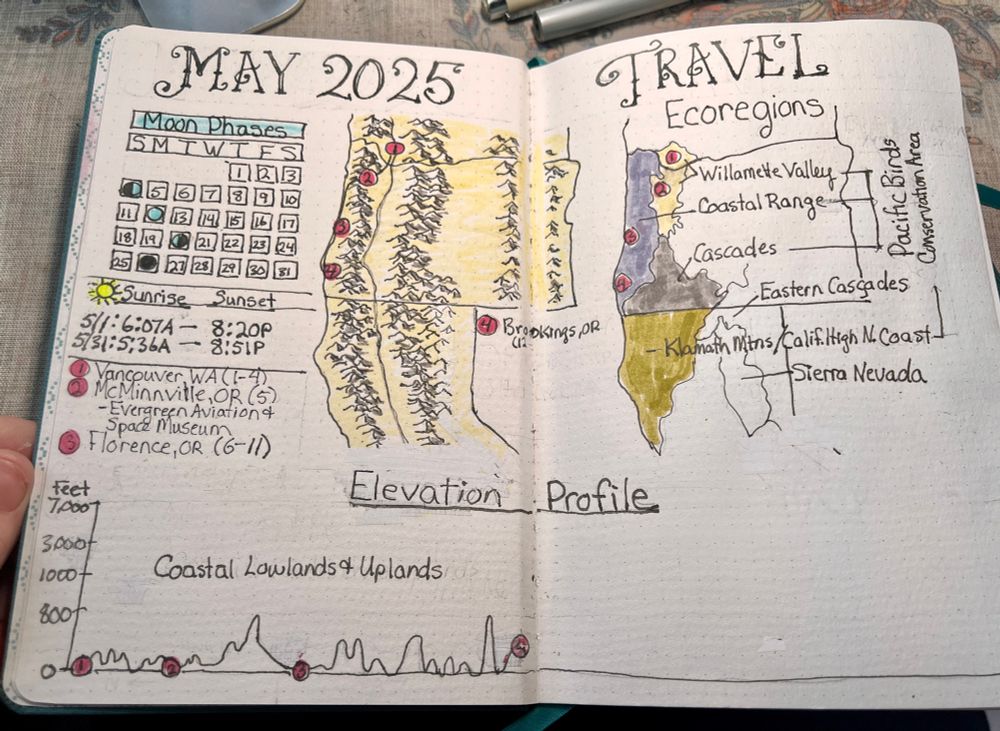 MAY 2025
Moon Phases
S M T W T F S
1 2 3
5 6 7 8 9 10
11 13 14 15 16 17
18 19 21 22 23 24
25 27 28 29 30 31
Sunrise Sunset
5/1: 6:07A — 8:20P
5/31: 5:36A — 8:51P
1 Vancouver, WA (1-4)
2 McMinnville, OR (5)
- Evergreen Aviation &
Space Museum
3 Florence, OR (6-11)
1
2
3
4
4 Brookings, OR
(12
TRAVEL
Ecoregions
1
2
3
4
Willamette Valley
Coastal Range
Cascades
Eastern Cascades
- Klamath Mtns/Calif. High N. Coast
Sierra Nevada
Pacific Birds
Conservation Area
Elevation Profile
Feet
7,000
3,000
1000
800
0
Coastal Lowlands & Uplands
1 2 3 4